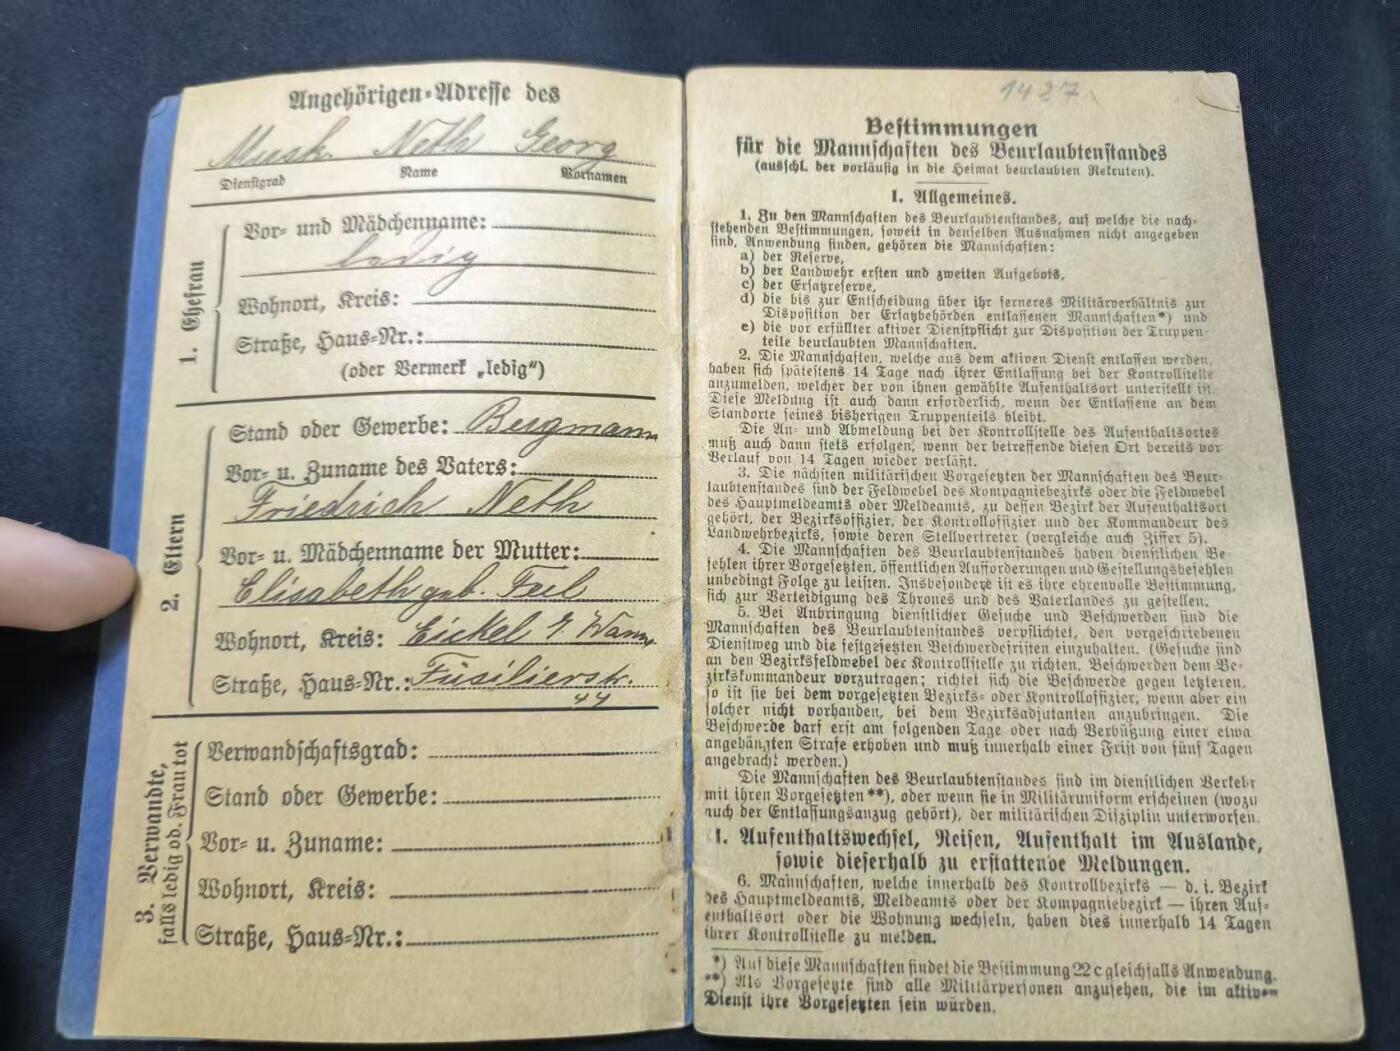 Angehörigen-Adresse des
Musk. Neth Georg
Dienstgrad Name Vornamen
1. Ehefrau
Vor- und Mädchenname:
ledig
Wohnort, Kreis:
Straße, Haus-Nr.:
(oder Vermerk „ledig“)
2. Eltern
Stand oder Gewerbe: Bergmann
Vor- u. Zuname des Vaters:
Friedrich Neth
Vor- u. Mädchenname der Mutter:
Elisabeth geb. Feel
Wohnort, Kreis: Eickel
Straße, Haus-Nr.: Füsilierstr.
44
3. Verwandte,
falls ledig od. Frau tot
Verwandschaftsgrad:
Stand oder Gewerbe:
Vor- u. Zuname:
Wohnort, Kreis:
Straße, Haus-Nr.:
1427
Bestimmungen
für die Mannschaften des Beurlaubtenstandes
(ausschl. der vorläufig in die Heimat beurlaubten Rekruten).
1. Allgemeines.
1. Zu den Mannschaften des Beurlaubtenstandes, auf welche die nach-
stehenden Bestimmungen, soweit in denselben Ausnahmen nicht angegeben
sind, Anwendung finden, gehören die Mannschaften:
a) der Reserve,
b) der Landwehr ersten und zweiten Aufgebots,
c) der Ersatzreserve,
d) die bis zur Entscheidung über ihr ferneres Militärverhältnis zur
Disposition der Ersatzbehörden entlassenen Mannschaften*) und
e) die vor erfüllter aktiver Dienstpflicht zur Disposition der Truppen-
teile beurlaubten Mannschaften.
2. Die Mannschaften, welche aus dem aktiven Dienst entlassen werden,
haben sich spätestens 14 Tage nach ihrer Entlassung bei der Kontrollstelle
anzumelden, welcher der von ihnen gewählte Aufenthaltsort unterstellt ist.
Diese Meldung ist auch dann erforderlich, wenn der Entlassene an dem
Standorte seines bisherigen Truppenteils bleibt.
Die An- und Abmeldung bei der Kontrollstelle des Aufenthaltsortes
muß auch dann stets erfolgen, wenn der betreffende diesen Ort bereits vor
Verlauf von 14 Tagen wieder verläßt.
3. Die nächsten militärischen Vorgesetzten der Mannschaften des Beur-
laubtenstandes sind der Feldwebel des Kompagniebezirks oder die Feldwebel
des Hauptmeldeamts oder Meldeamts, zu dessen Bezirk der Aufenthaltsort
gehört, der Bezirksoffizier, der Kontrolloffizier und der Kommandeur des
Landwehrbezirks, sowie deren Stellvertreter (vergleiche auch Ziffer 5).
4. Die Mannschaften des Beurlaubtenstandes haben dienstlichen Be-
fehlen ihrer Vorgesetzten, öffentlichen Aufforderungen und Gestellungsbefehlen
unbedingt Folge zu leisten. Insbesondere ist es ihre ehrenvolle Bestimmung,
sich zur Verteidigung des Thrones und des Vaterlandes zu gestellen.
5. Bei Anbringung dienstlicher Gesuche und Beschwerden sind die
Mannschaften des Beurlaubtenstandes verpflichtet, den vorgeschriebenen
Dienstweg und die festgesetzten Beschwerdefristen einzuhalten. (Gesuche sind
an den Bezirksfeldwebel der Kontrollstelle zu richten, Beschwerden dem Be-
zirkskommandeur vorzutragen; richtet sich die Beschwerde gegen letzteren,
so ist sie bei dem vorgesetzten Bezirks- oder Kontrolloffizier, wenn aber ein
solcher nicht vorhanden, bei dem Bezirksadjutanten anzubringen. Die
Beschwerde darf erst am folgenden Tage oder nach Verbüßung einer etwa
angehängten Strafe erhoben und muß innerhalb einer Frist von fünf Tagen
angebracht werden.)
Die Mannschaften des Beurlaubtenstandes sind im dienstlichen Verkehr
mit ihren Vorgesetzten**), oder wenn sie in Militäruniform erscheinen (wozu
auch der Entlassungsanzug gehört), der militärischen Disziplin unterworfen.
1. Aufenthaltswechsel, Reisen, Aufenthalt im Auslande,
sowie dieserhalb zu erstattende Meldungen.
6. Mannschaften, welche innerhalb des Kontrollbezirks — d. i. Bezirk
des Hauptmeldeamts, Meldeamts oder der Kompagniebezirk — ihren Auf-
enthaltsort oder die Wohnung wechseln, haben dies innerhalb 14 Tagen
ihrer Kontrollstelle zu melden.
*) Auf diese Mannschaften findet die Bestimmung 22 c gleichfalls Anwendung.
**) Als Vorgesetzte sind alle Militärpersonen anzusehen, die im aktiven
Dienst ihre Vorgesetzten sein würden.